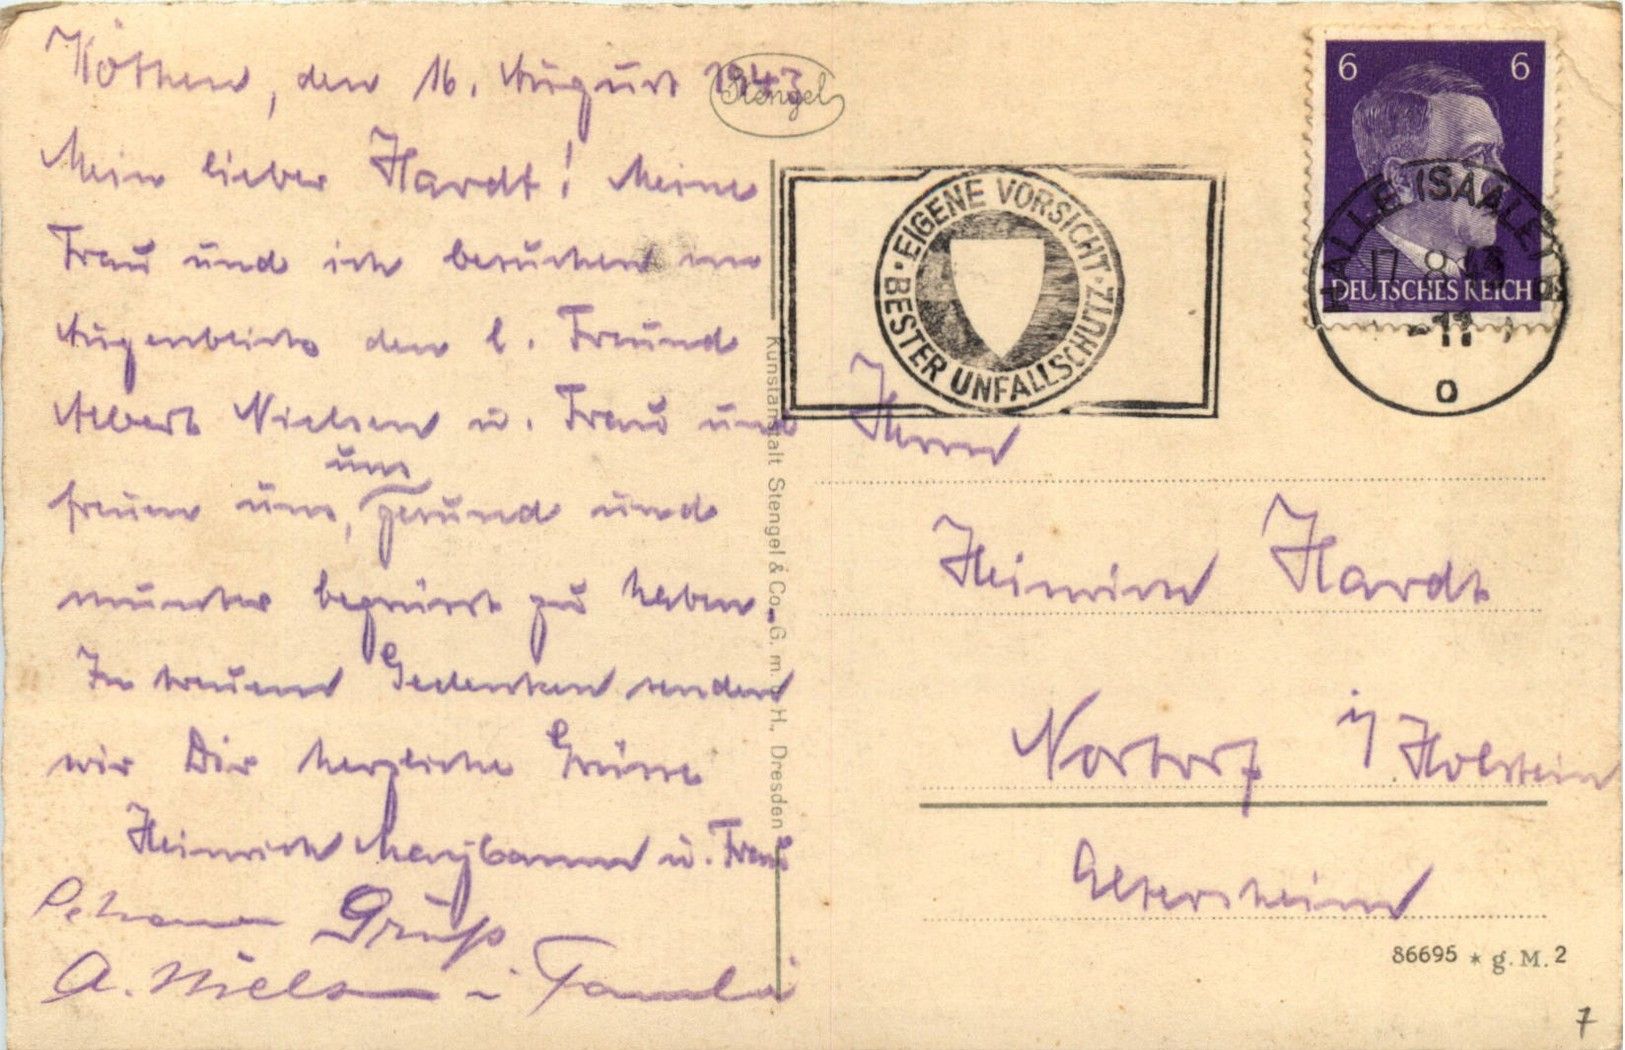 Köthen, den 16. August 1943
Mein lieber Hardt! Meine
Frau und ich besuchen im
Augenblick den l. Freund
Albert Nielsen u. Frau und
freuen uns, uns gesund und
munter begrüsst zu haben.
In treuem Gedenken senden
wir Dir herzliche Grüsse
Heinrich u. Frau
Gruß
A. Nielsen Familie
Stengel
Kunstanstalt Stengel & Co., G. m. b. H., Dresden
EIGENE VORSICHT · BESTER UNFALLSCHUTZ ·
6 6
DEUTSCHES REICH
HALLE (SAALE)
17.8.43
o
Herrn
Heinrich Hardt
Nortorf i/Holstein
Altersheim
86695 * g. M. 2
7